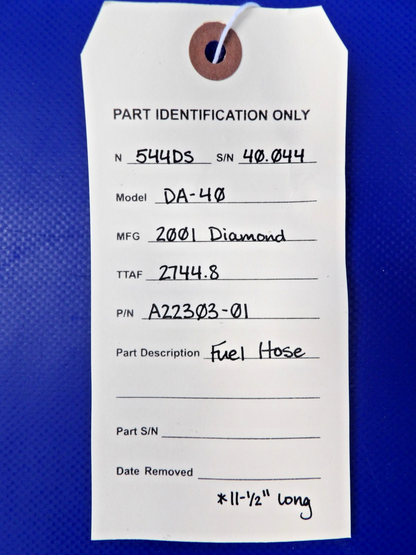 PART IDENTIFICATION ONLY
N 544DS S/N 40.044
Model DA-40
MFG 2001 Diamond
TTAF 2744.8
P/N A22303-01
Part Description Fuel Hose
Part S/N
Date Removed
*11-1/2" long